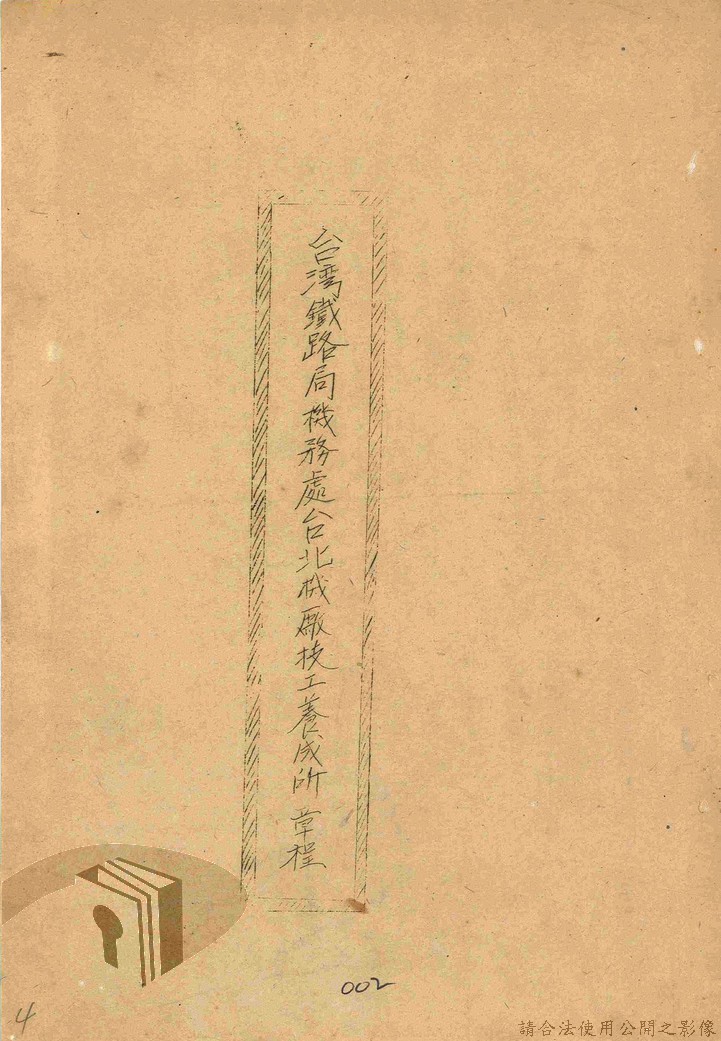 台湾鐵路局機務處台北机廠技工養成所 章程
002
4
請合法使用公開之影像